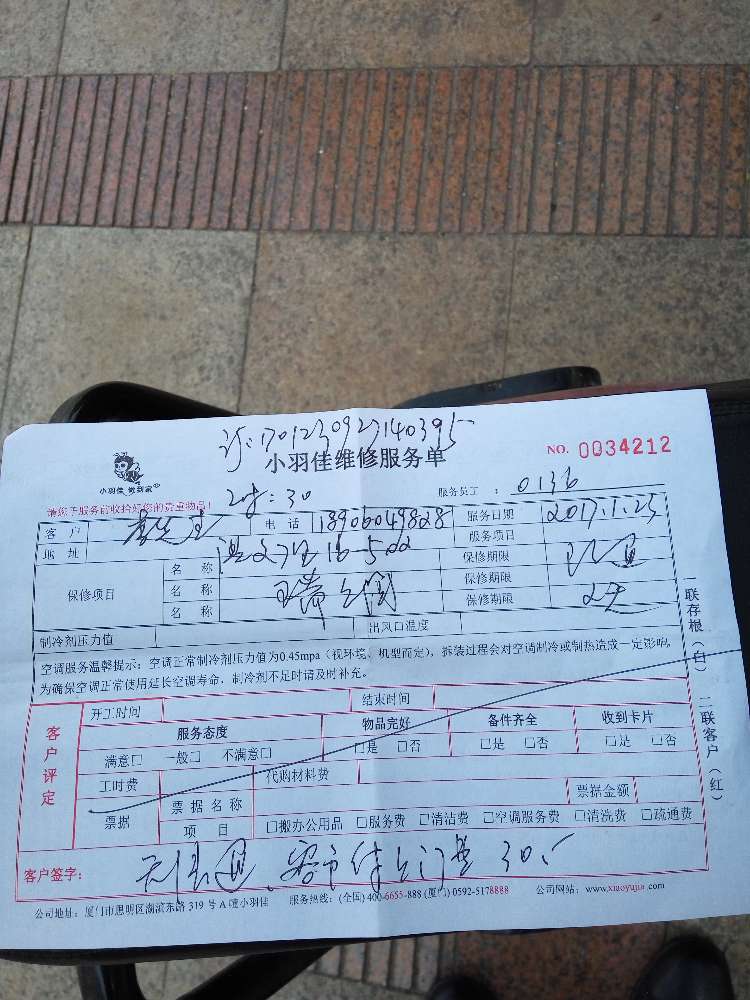 订:1701230927140395
小羽佳维修服务单
NO. 0034212
小羽佳 微到家
请您于服务前收拾好您的贵重物品!
2时:30
服务员工 : 0136
客 户 先生 电 话 18906049828 服务日期 2017.1.25
地 址 16-502 服务项目
保修项目 名 称 保修期限
名 称 保修期限
名 称 保修期限
制冷剂压力值 出风口温度
空调服务温馨提示:空调正常制冷剂压力值为0.45mpa(视环境、机型而定),拆装过程会对空调制冷或制热造成一定影响,
为确保空调正常使用延长空调寿命,制冷剂不足时请及时补充。
一联存根(白) 二联客户(红)
客户评定
开工时间 结束时间
服务态度 物品完好 备件齐全 收到卡片
满意□ 一般□ 不满意□ □是 □否 □是 □否 □是 □否
工时费 代购材料费
票据 票 据 名 称 票据金额
项 目 □搬办公用品 □服务费 □清洁费 □空调服务费 □清洗费 □疏通费
客户签字: 客户付上门费 30.
公司地址:厦门市思明区湖滨东路 319 号 A 幢小羽佳 服务热线:(全国) 400-6655-888 (厦门) 0592-5178888 公司网站:www.xiaoyujia.com